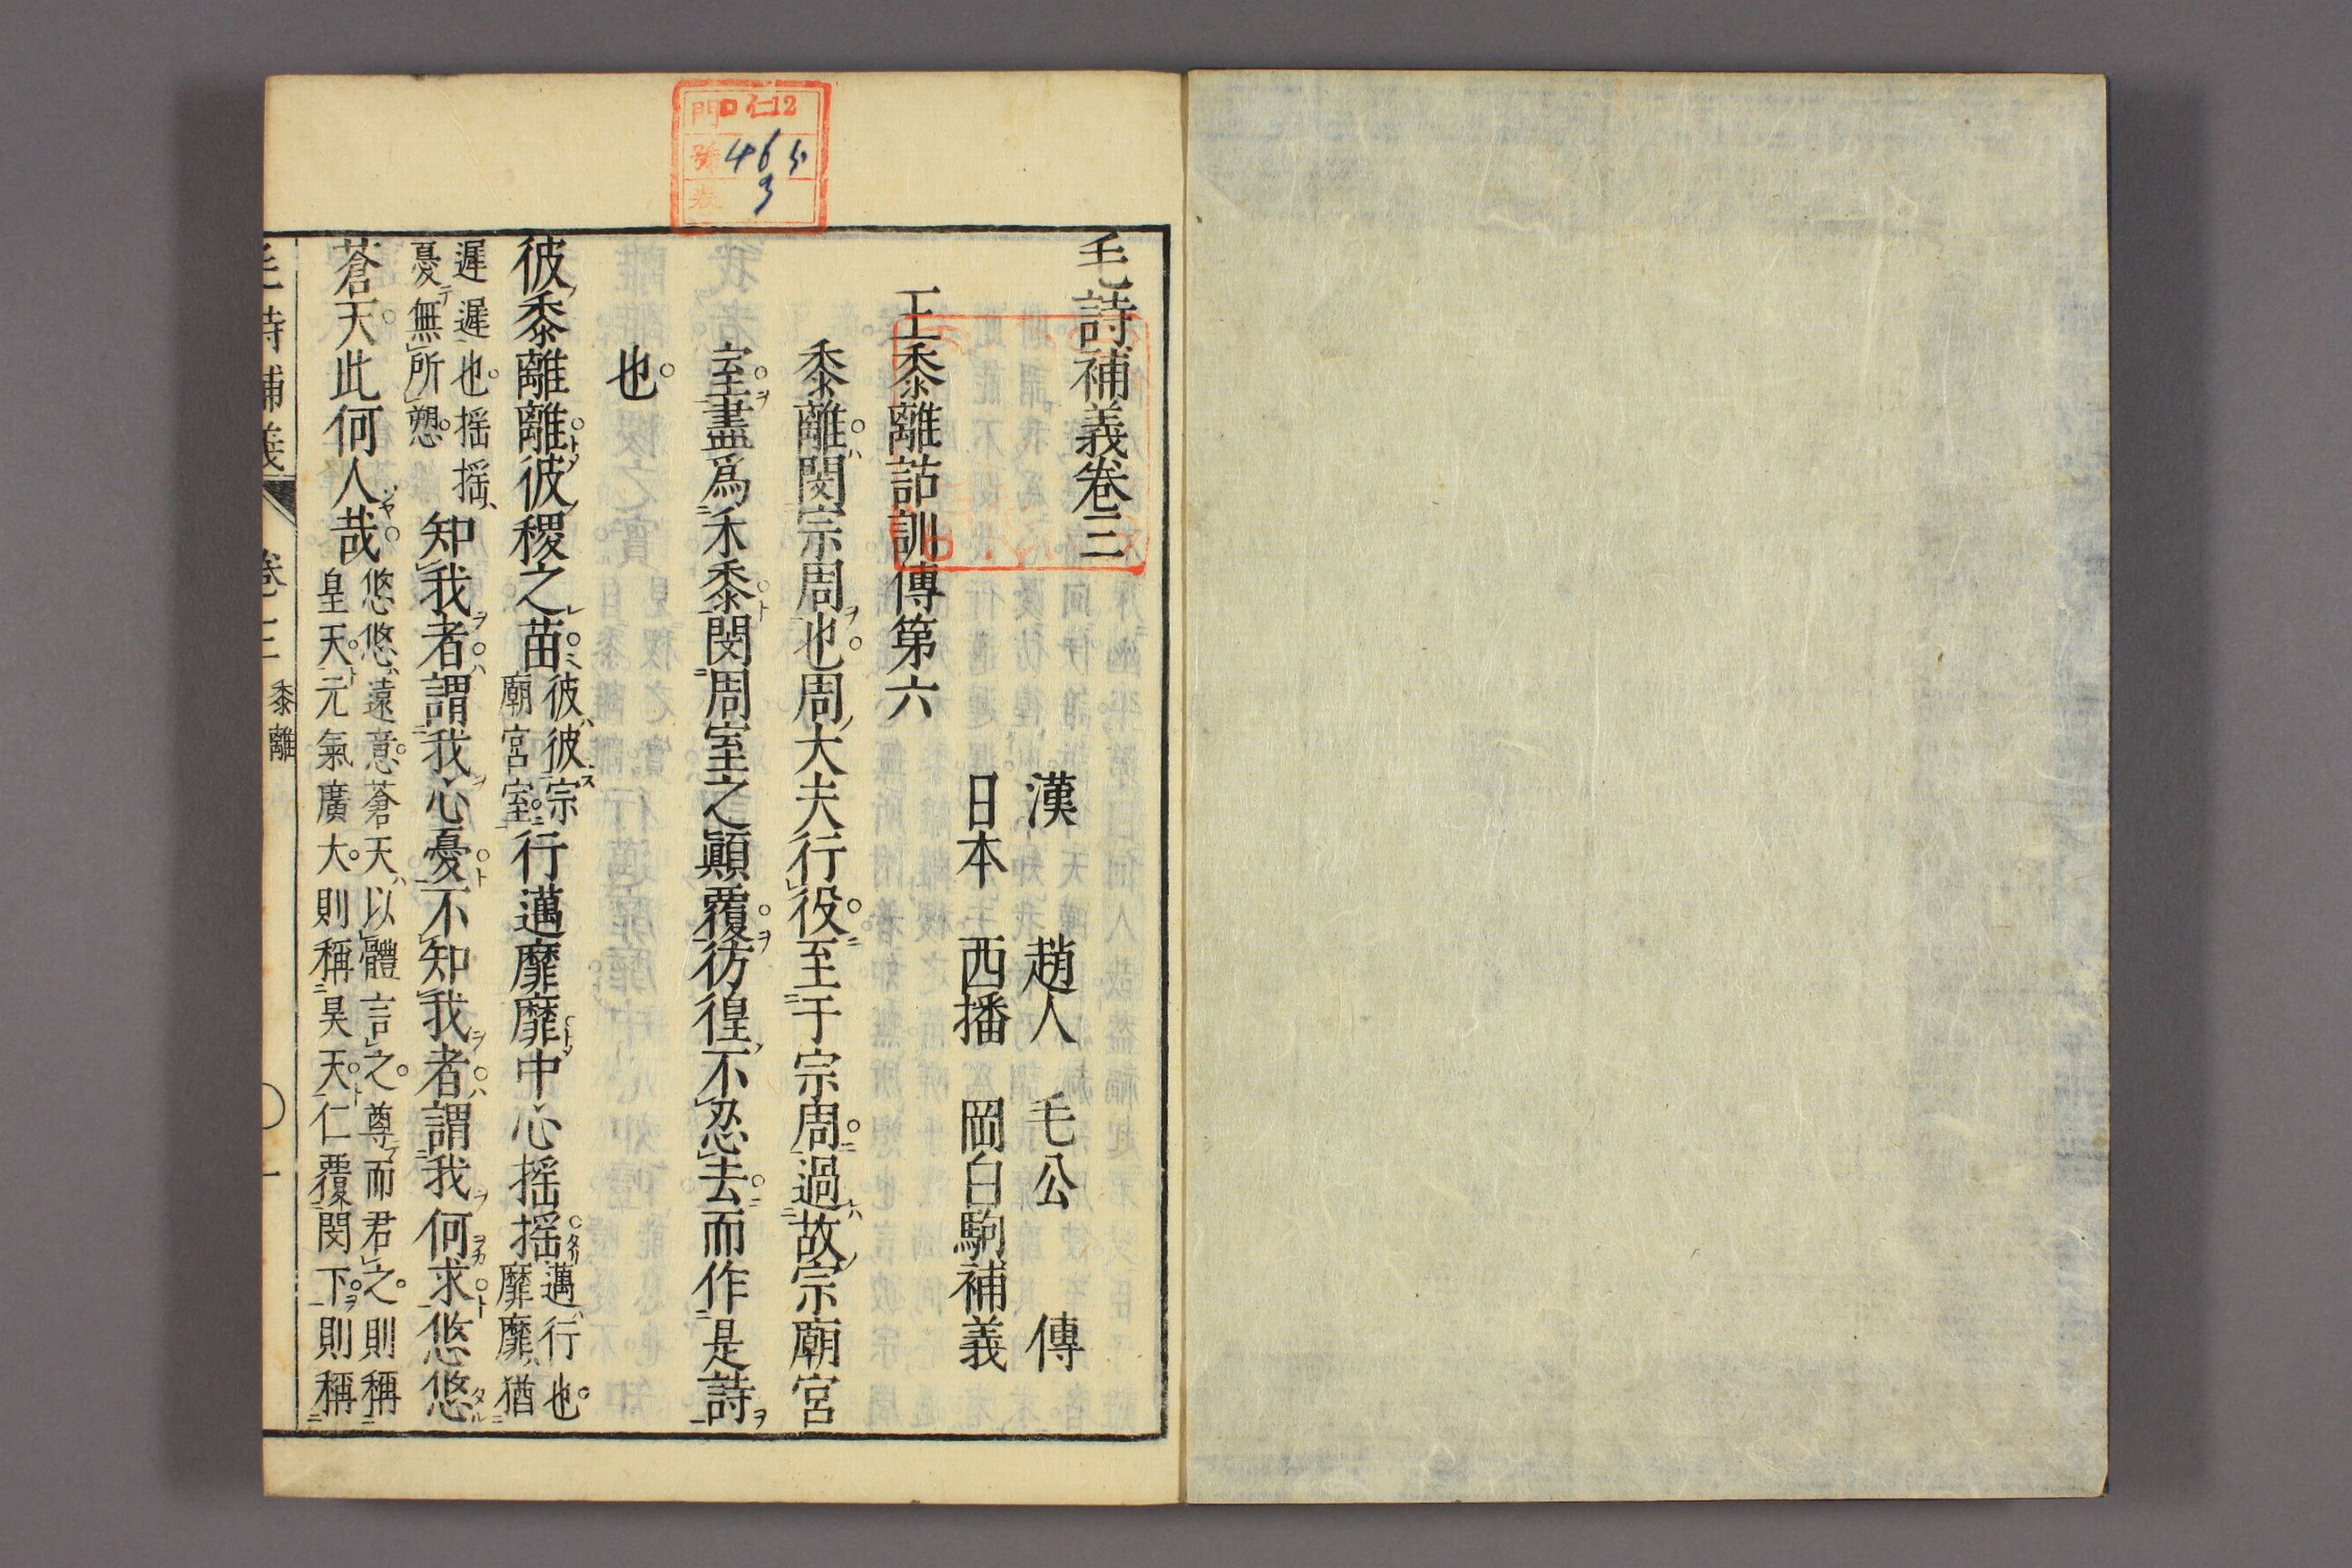 毛詩補義卷三
漢 趙人 毛公 傳
日本 西播 岡白駒補義
王黍離詁訓傳第六
黍離閔宗周也周大夫行役至于宗周過故宗廟宮
室盡爲禾黍閔周室之顚覆彷徨不忍去而作是詩
也
彼黍離離彼稷之苗彼彼宗廟宮室行邁靡靡中心搖搖邁行也靡靡猶
遲遲也搖搖憂無所愬知我者謂我心憂不知我者謂我何求悠悠
蒼天此何人哉悠悠遠意蒼天以體言之尊而君之則稱皇天元氣廣大則稱昊天仁覆閔下則稱
毛詩補義 卷三 黍離 一
門 ロ仁12
號 465
卷 3